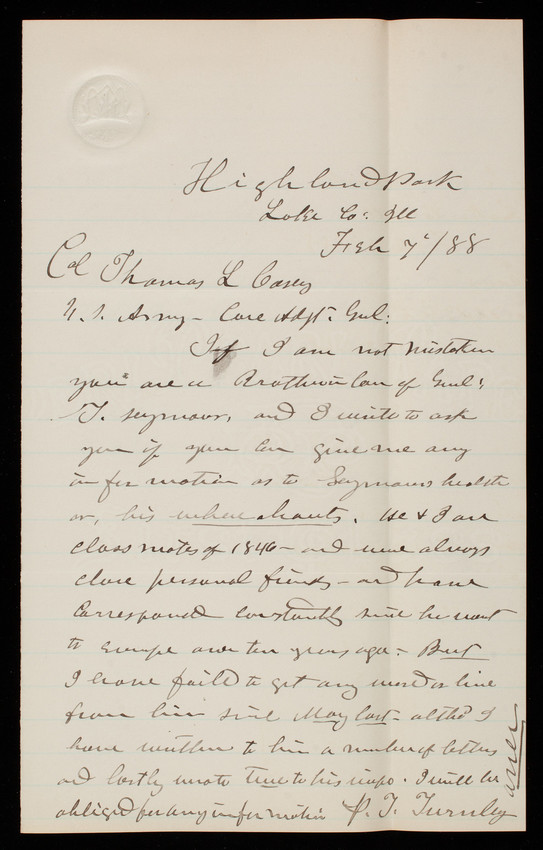 Highland Park
Lake Co: Ill
Feb 7"/88
Col Thomas L Casey
U.S. Army - Care Adjt. Genl:
If I am not mistaken
you are a Brother in law of Genl:
T. Seymour, and I write to ask
you if you can give me any
information as to Seymours health
or, his where abouts. He & I are
class mates of 1846 - and were always
close personal friends - and have
corresponded constantly since he went
to Europe over ten years ago - But
I have failed to get any word or line
from him since May last - altho' I
have written to him a number of letters
and lastly wrote to his wife. I will be
obliged for any information P. T. Turnley
over